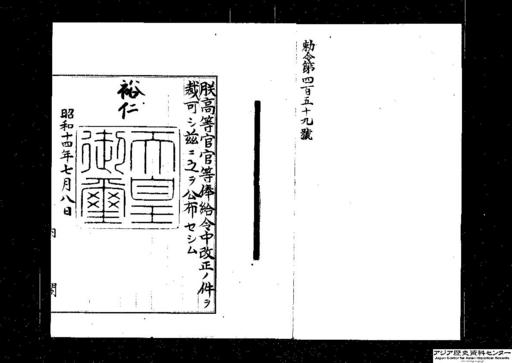 勅令第四百五十九號
朕高等官官等俸給令中改正ノ件ヲ
裁可シ茲ニ之ヲ公布セシム
裕仁
天皇
御璽
昭和十四年七月八日
内閣
アジア歴史資料センター
Japan Center for Asian Historical Records